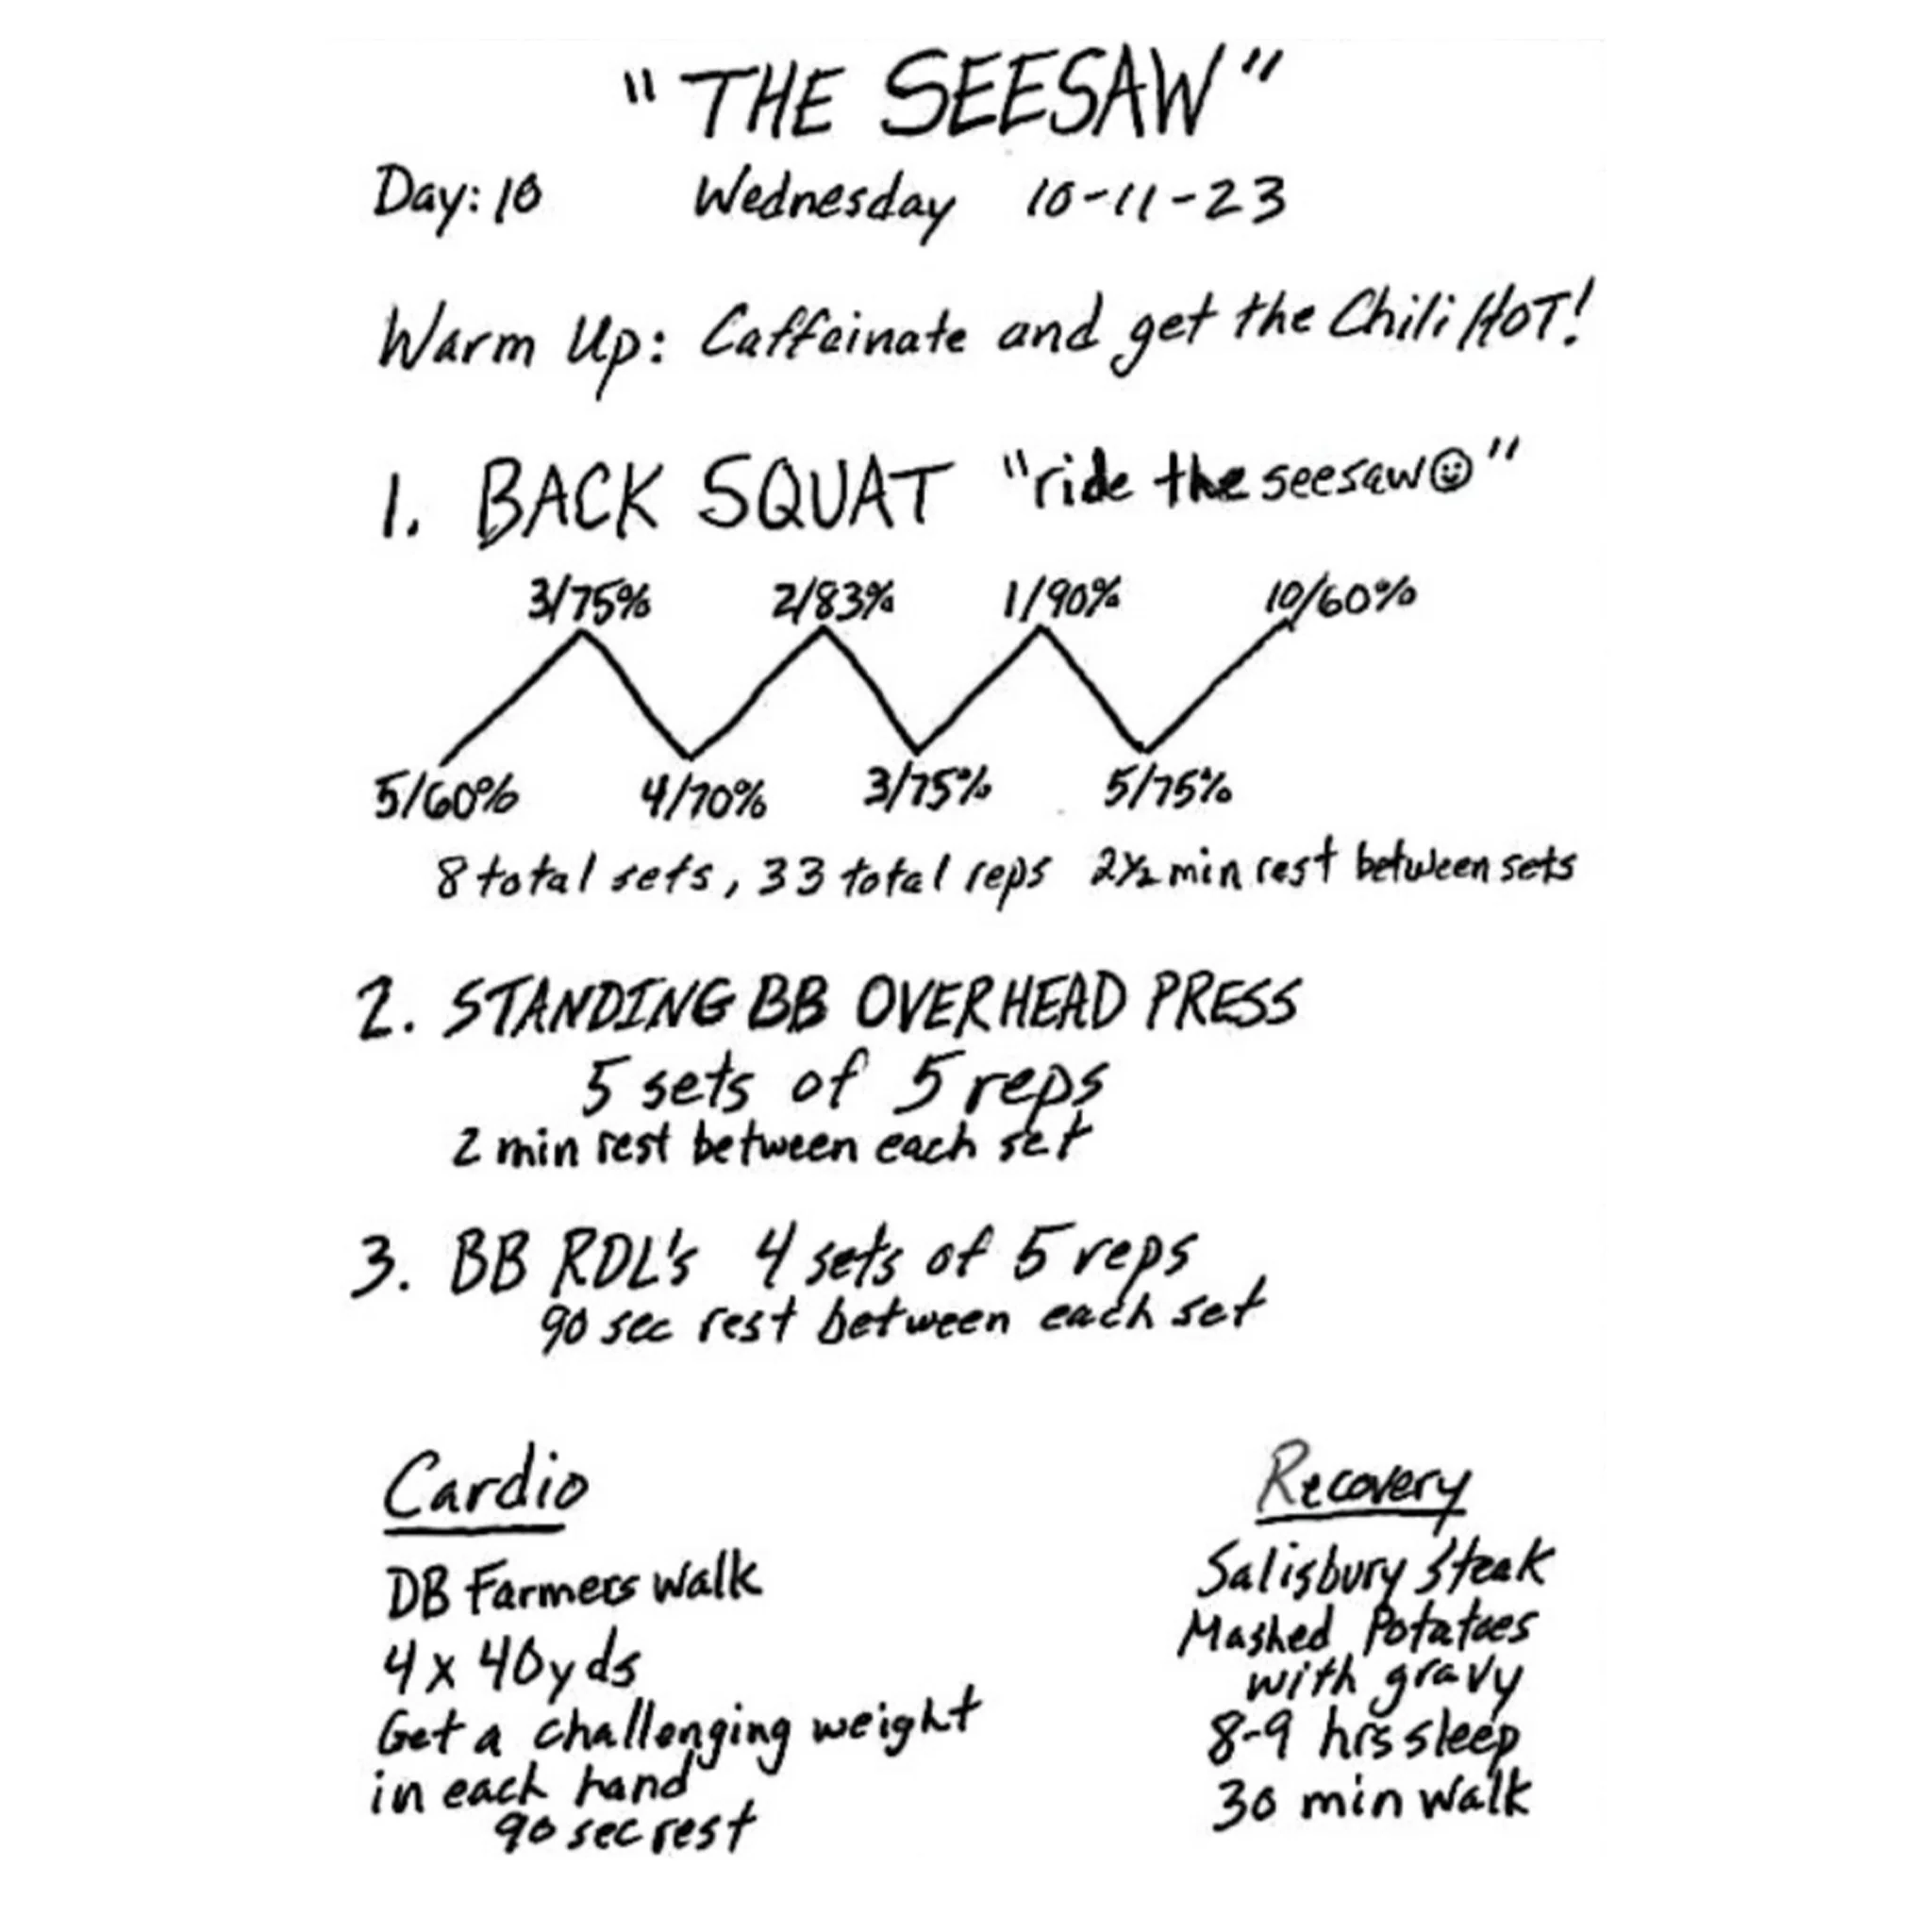 "THE SEESAW"
Day: 10 Wednesday 10-11-23
Warm Up: Caffeinate and get the Chili HOT!
1. BACK SQUAT "ride the seesaw☺"
3/75% 2/83% 1/90% 10/60%
5/60% 4/70% 3/75% 5/75%
8 total sets, 33 total reps 2½ min rest between sets
2. STANDING BB OVERHEAD PRESS
5 sets of 5 reps
2 min rest between each set
3. BB RDL's 4 sets of 5 reps
90 sec rest between each set
Cardio
DB Farmers Walk
4 x 40yds
Get a challenging weight
in each hand
90 sec rest
Recovery
Salisbury Steak
Mashed Potatoes
with gravy
8-9 hrs sleep
30 min walk